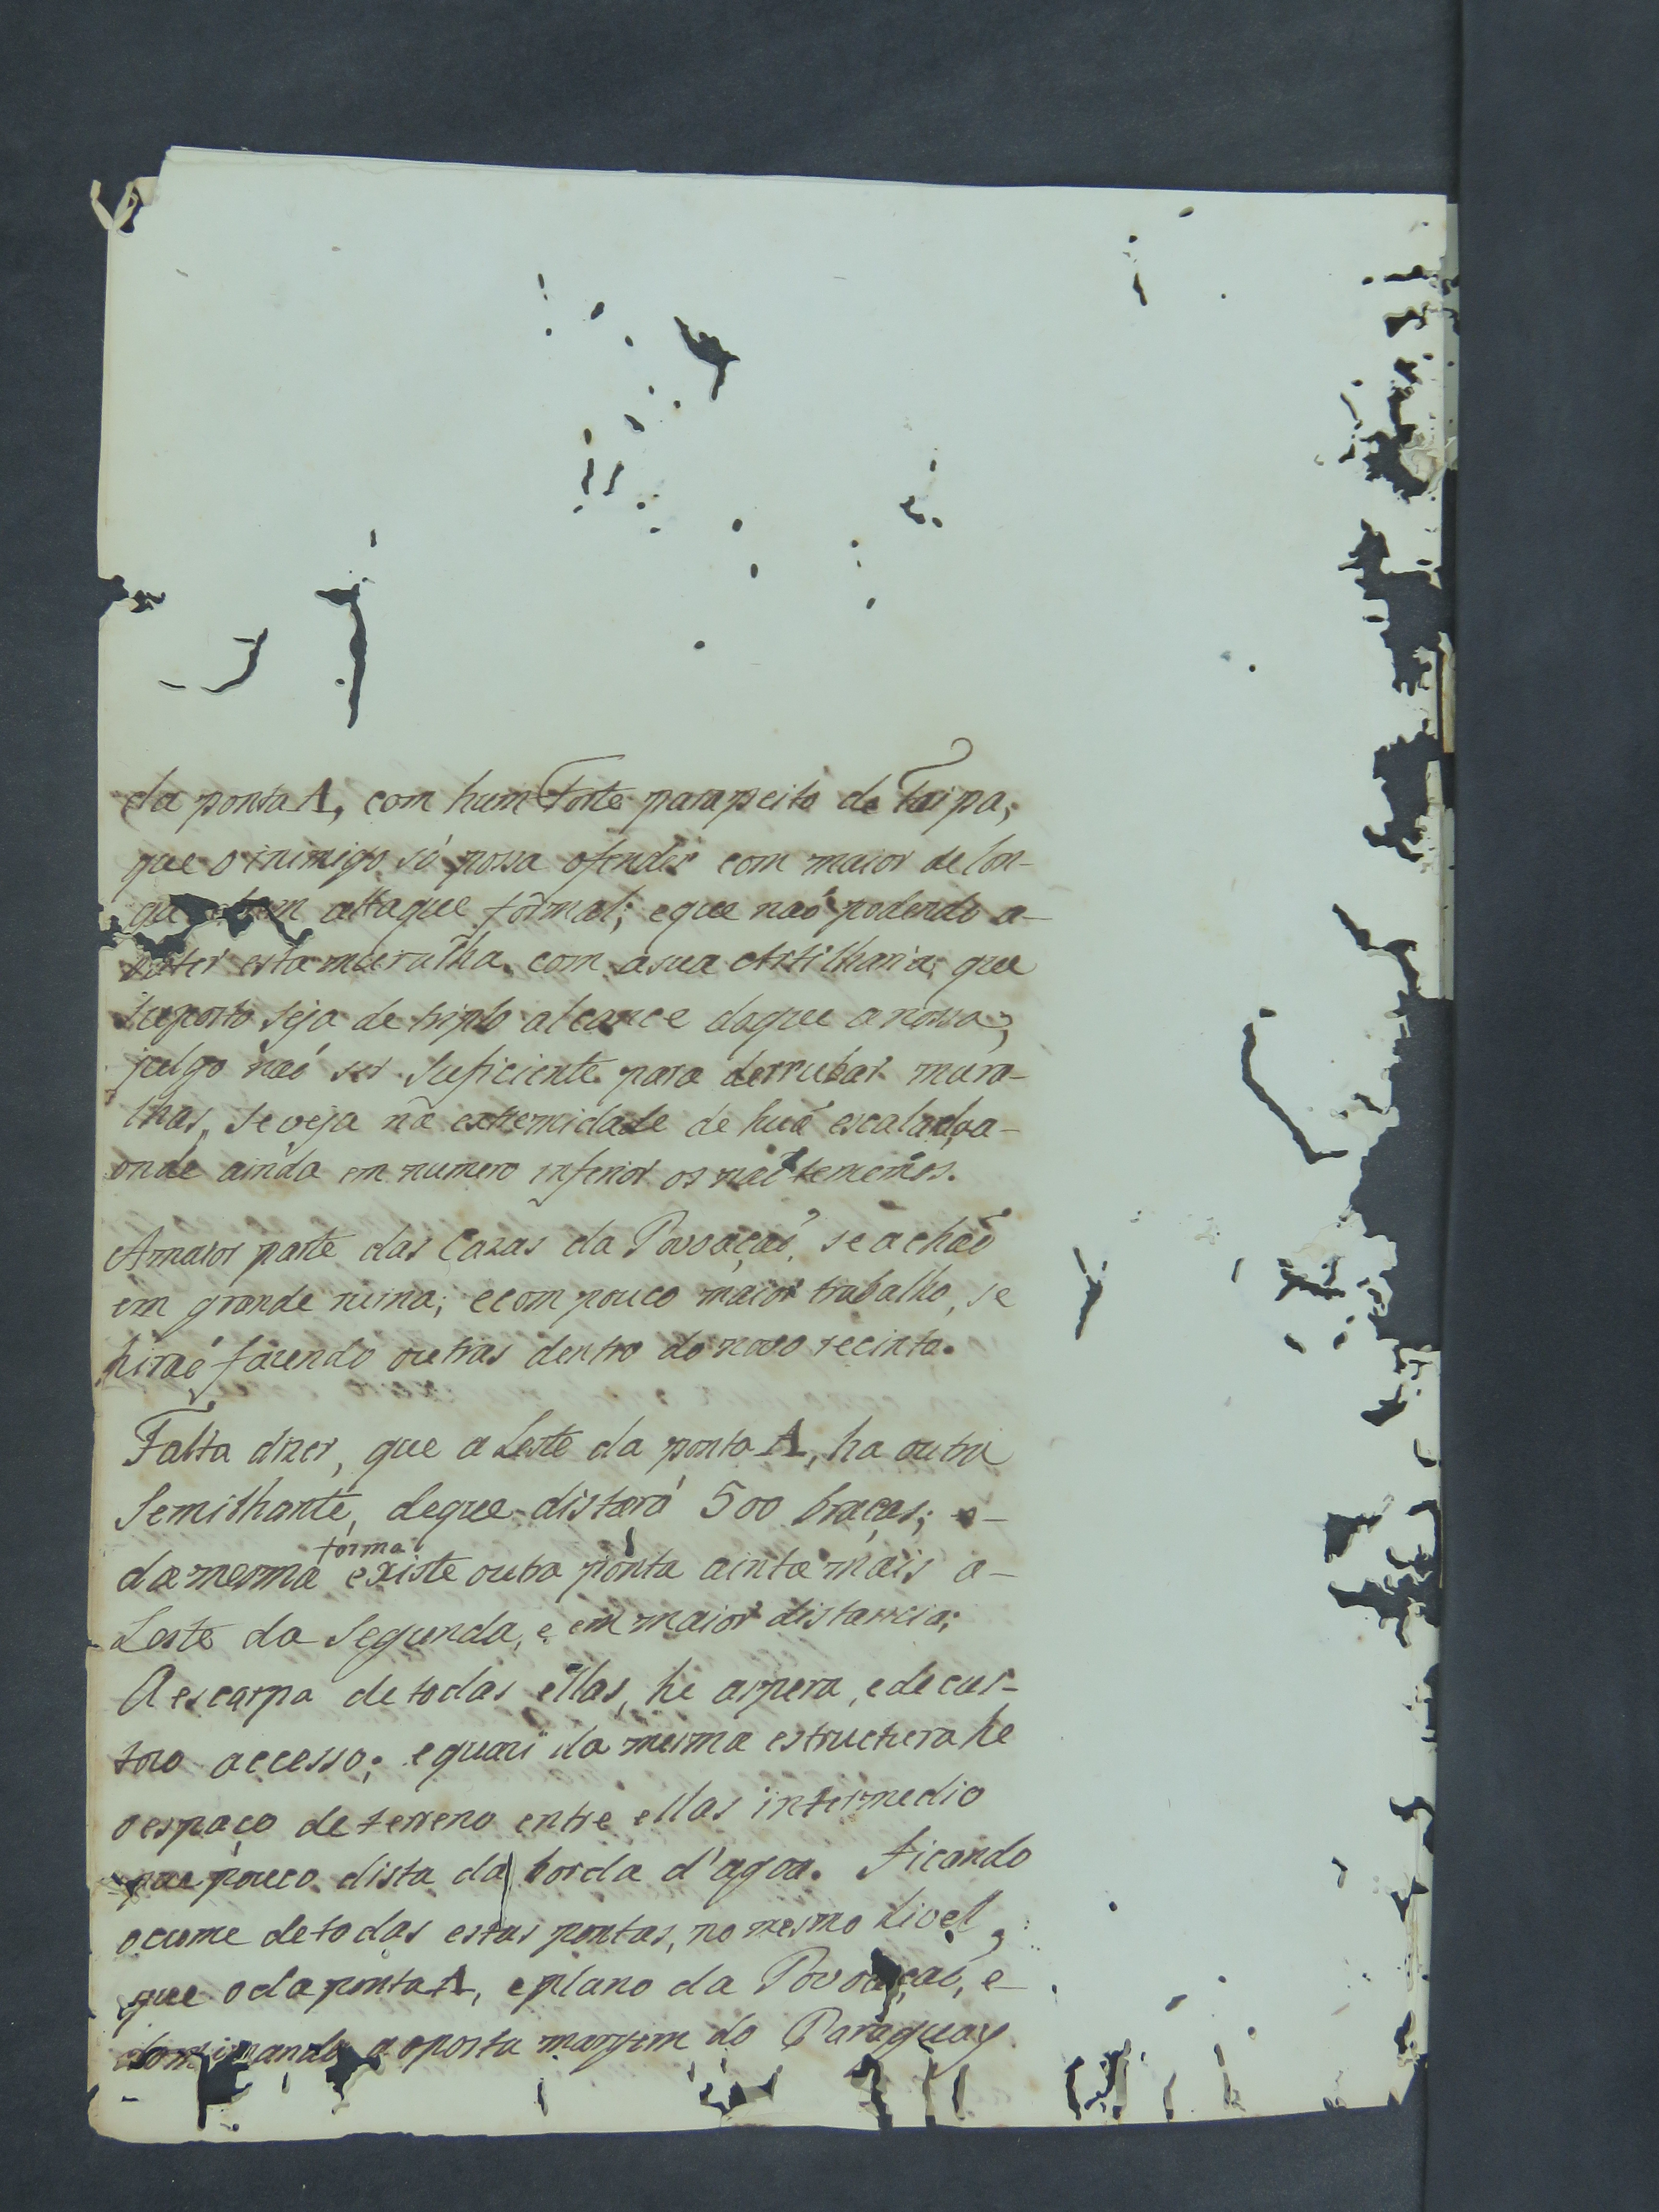 da ponta A, com hum Forte parapeito de Taipa,
que o inimigo só possa ofender com maior delon-
ga attaque formal; e que naõ podendo a-
bater esta muralha com a sua Artilharia, que
suposto seja de triplo alcance do que a nossa,
julgo naõ ser suficiente para derrubar mura-
lhas, se veja na extremidade de huã escalada, a-
onde ainda em numero inferior os naõ tememos.
A maior parte das Cazas da Povoaçaõ, se achaõ
em grande ruina; e com pouco maior trabalho, se
hiraõ fazendo outras dentro do novo recinto.
Falta dizer, que a Leste da ponta A, ha outra
Semilhante, de que distará 500 braças; e-
da mesma forma existe outra ponta ainta mais a-
Leste da Segunda, e em maior distancia;
A escarpa de todas ellas, he aspera, e de cus-
tozo accesso; e quazi da mesma estructura he
o espaço de terreno entre ellas intermedio
que pouco dista da borda d'agoa. Ficando
o cume de todas estas pontas, no mesmo Livel,
que o da ponta A, e plano da Povoaçaõ, e-
dominando a oposta margem do Paraguay